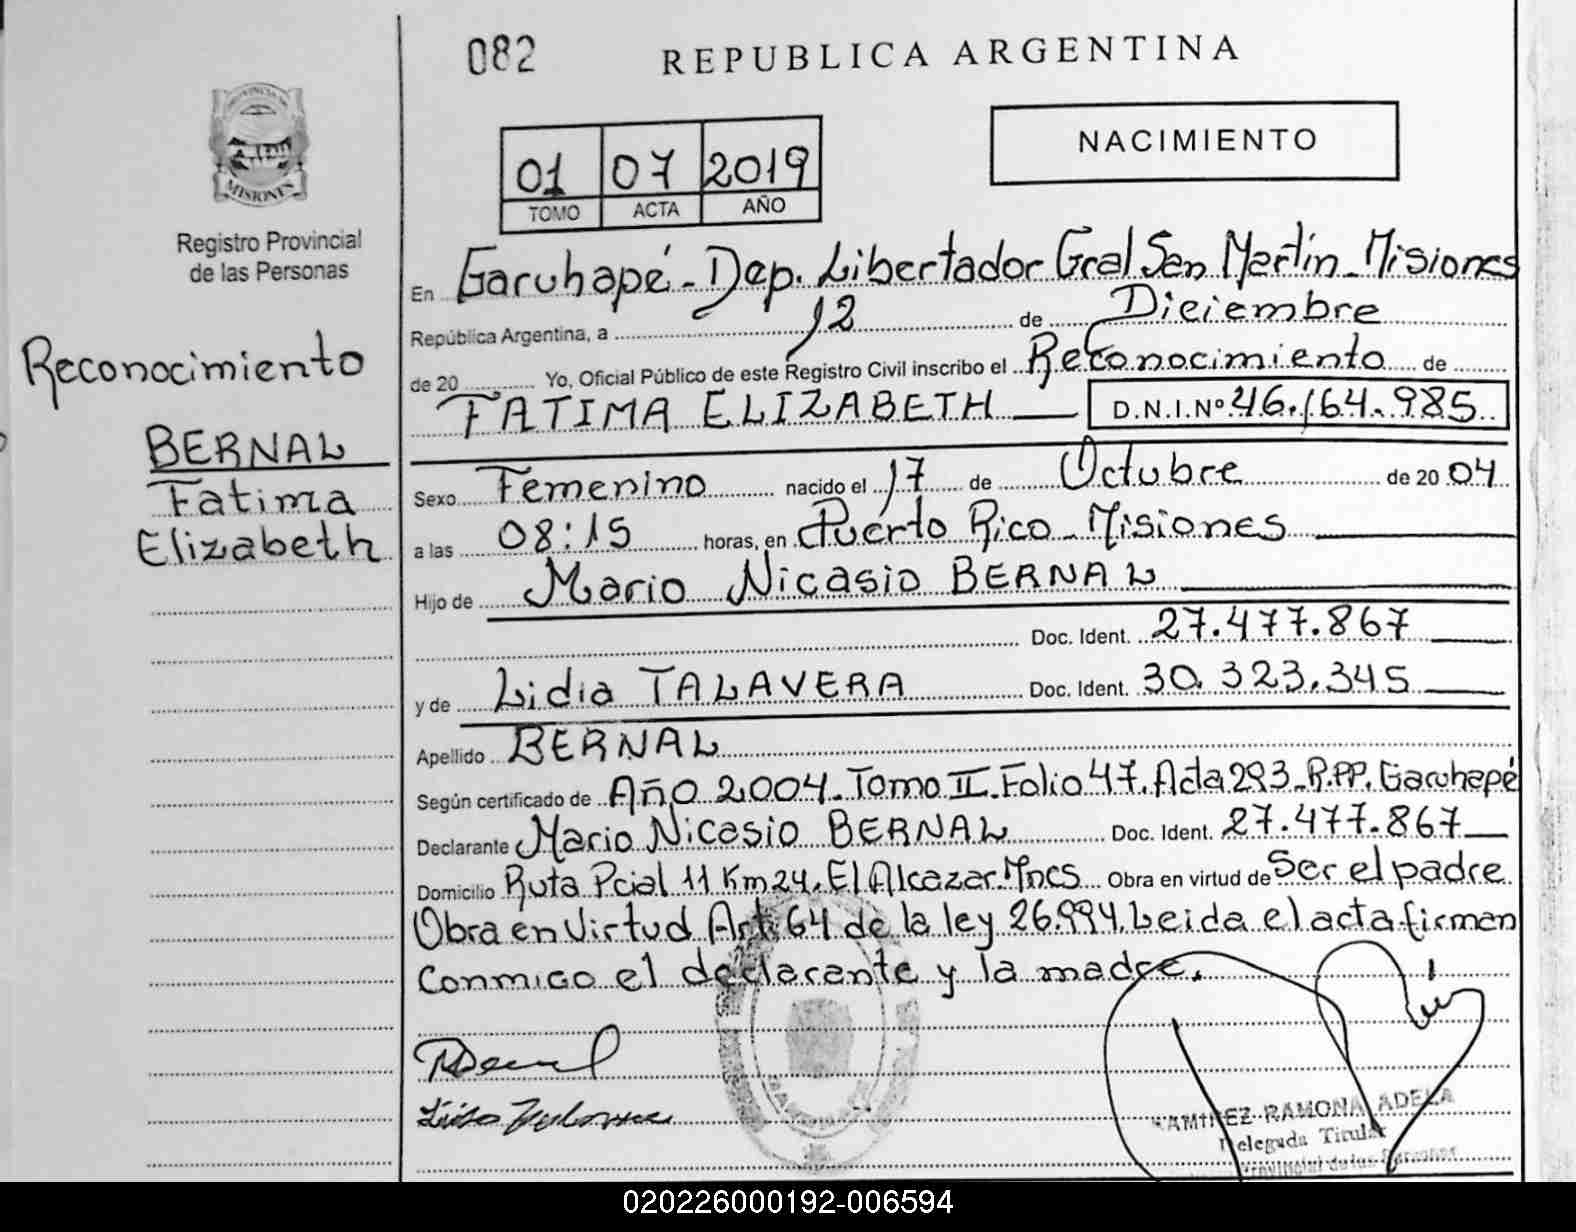 082
REPUBLICA ARGENTINA
NACIMIENTO
01 07 2019
TOMO ACTA AÑO
PROVINCIA DE
MISIONES
Registro Provincial
de las Personas
Reconocimiento
BERNAL
Fatima
Elizabeth
En Garuhapé - Dep. Libertador Gral San Martín - Misiones
República Argentina, a 12 de Diciembre
de 20 Yo, Oficial Público de este Registro Civil inscribo el Reconocimiento de
FATIMA ELIZABETH D.N.I.Nº 46.164.985
Sexo Femenino nacido el 17 de Octubre de 2004
a las 08:15 horas, en Puerto Rico - Misiones
Hijo de Mario Nicasio BERNAL
Doc. Ident. 27.477.867
y de Lidia TALAVERA Doc. Ident. 30.323.345
Apellido BERNAL
Según certificado de Año 2004. Tomo II. Folio 47. Acta 293 - R.PP. Garuhapé
Declarante Mario Nicasio BERNAL Doc. Ident. 27.477.867
Domicilio Ruta Pcial 11 Km 24. El Alcazar. Mnes Obra en virtud de Ser el padre
Obra en Virtud Art. 64 de la ley 26.994. Leida el acta firman
Conmigo el declarante y la madre.
RAMIREZ RAMONA ADELA
Delegada Titular
Provincial de las Personas
020226000192-006594